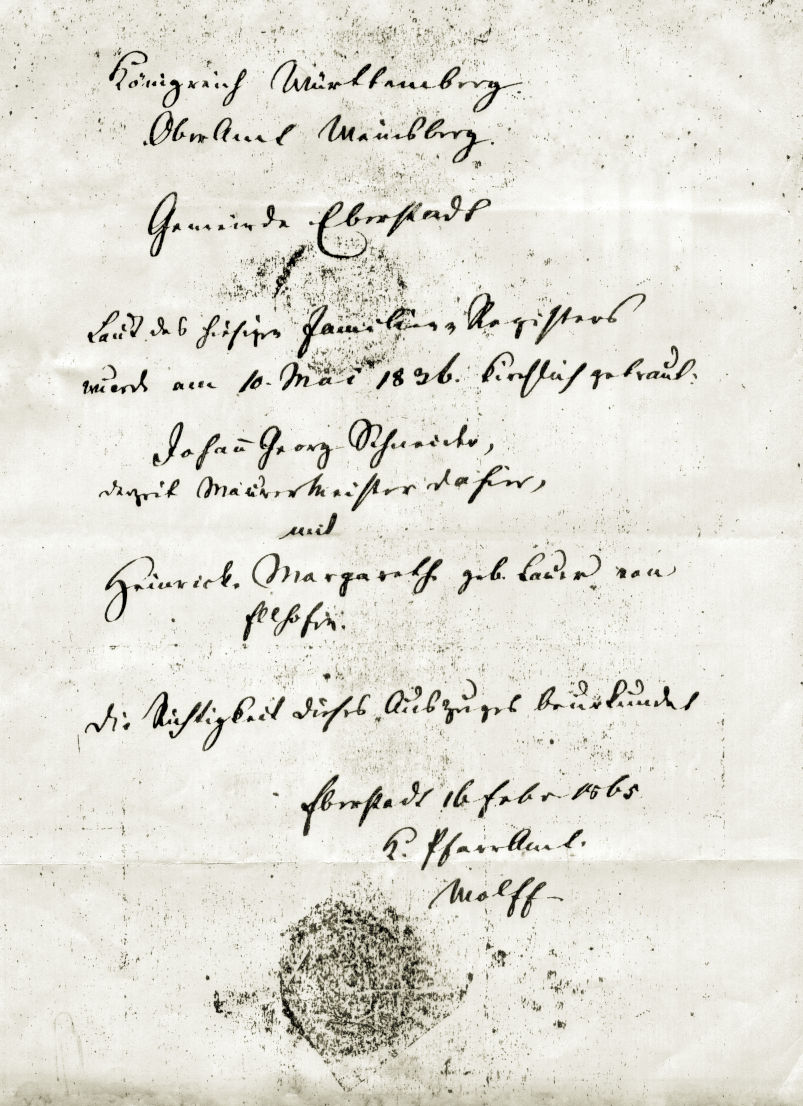 Königreich Württemberg
OberAmt Weinsberg.
Gemeinde Eberstadt
Laut des hiesigen Familien-Registers
wurde am 10. Mai 1836. kirchlich getraut.
Johann Georg Schneider,
derzeit Maurermeister dahier,
mit
Heinricke Margarethe geb. Lauer von
Ellhofen.
Die Richtigkeit dieses Auszuges beurkundet
Eberstadt 16 Febr 1865
K. PfarrAmt.
Wolff